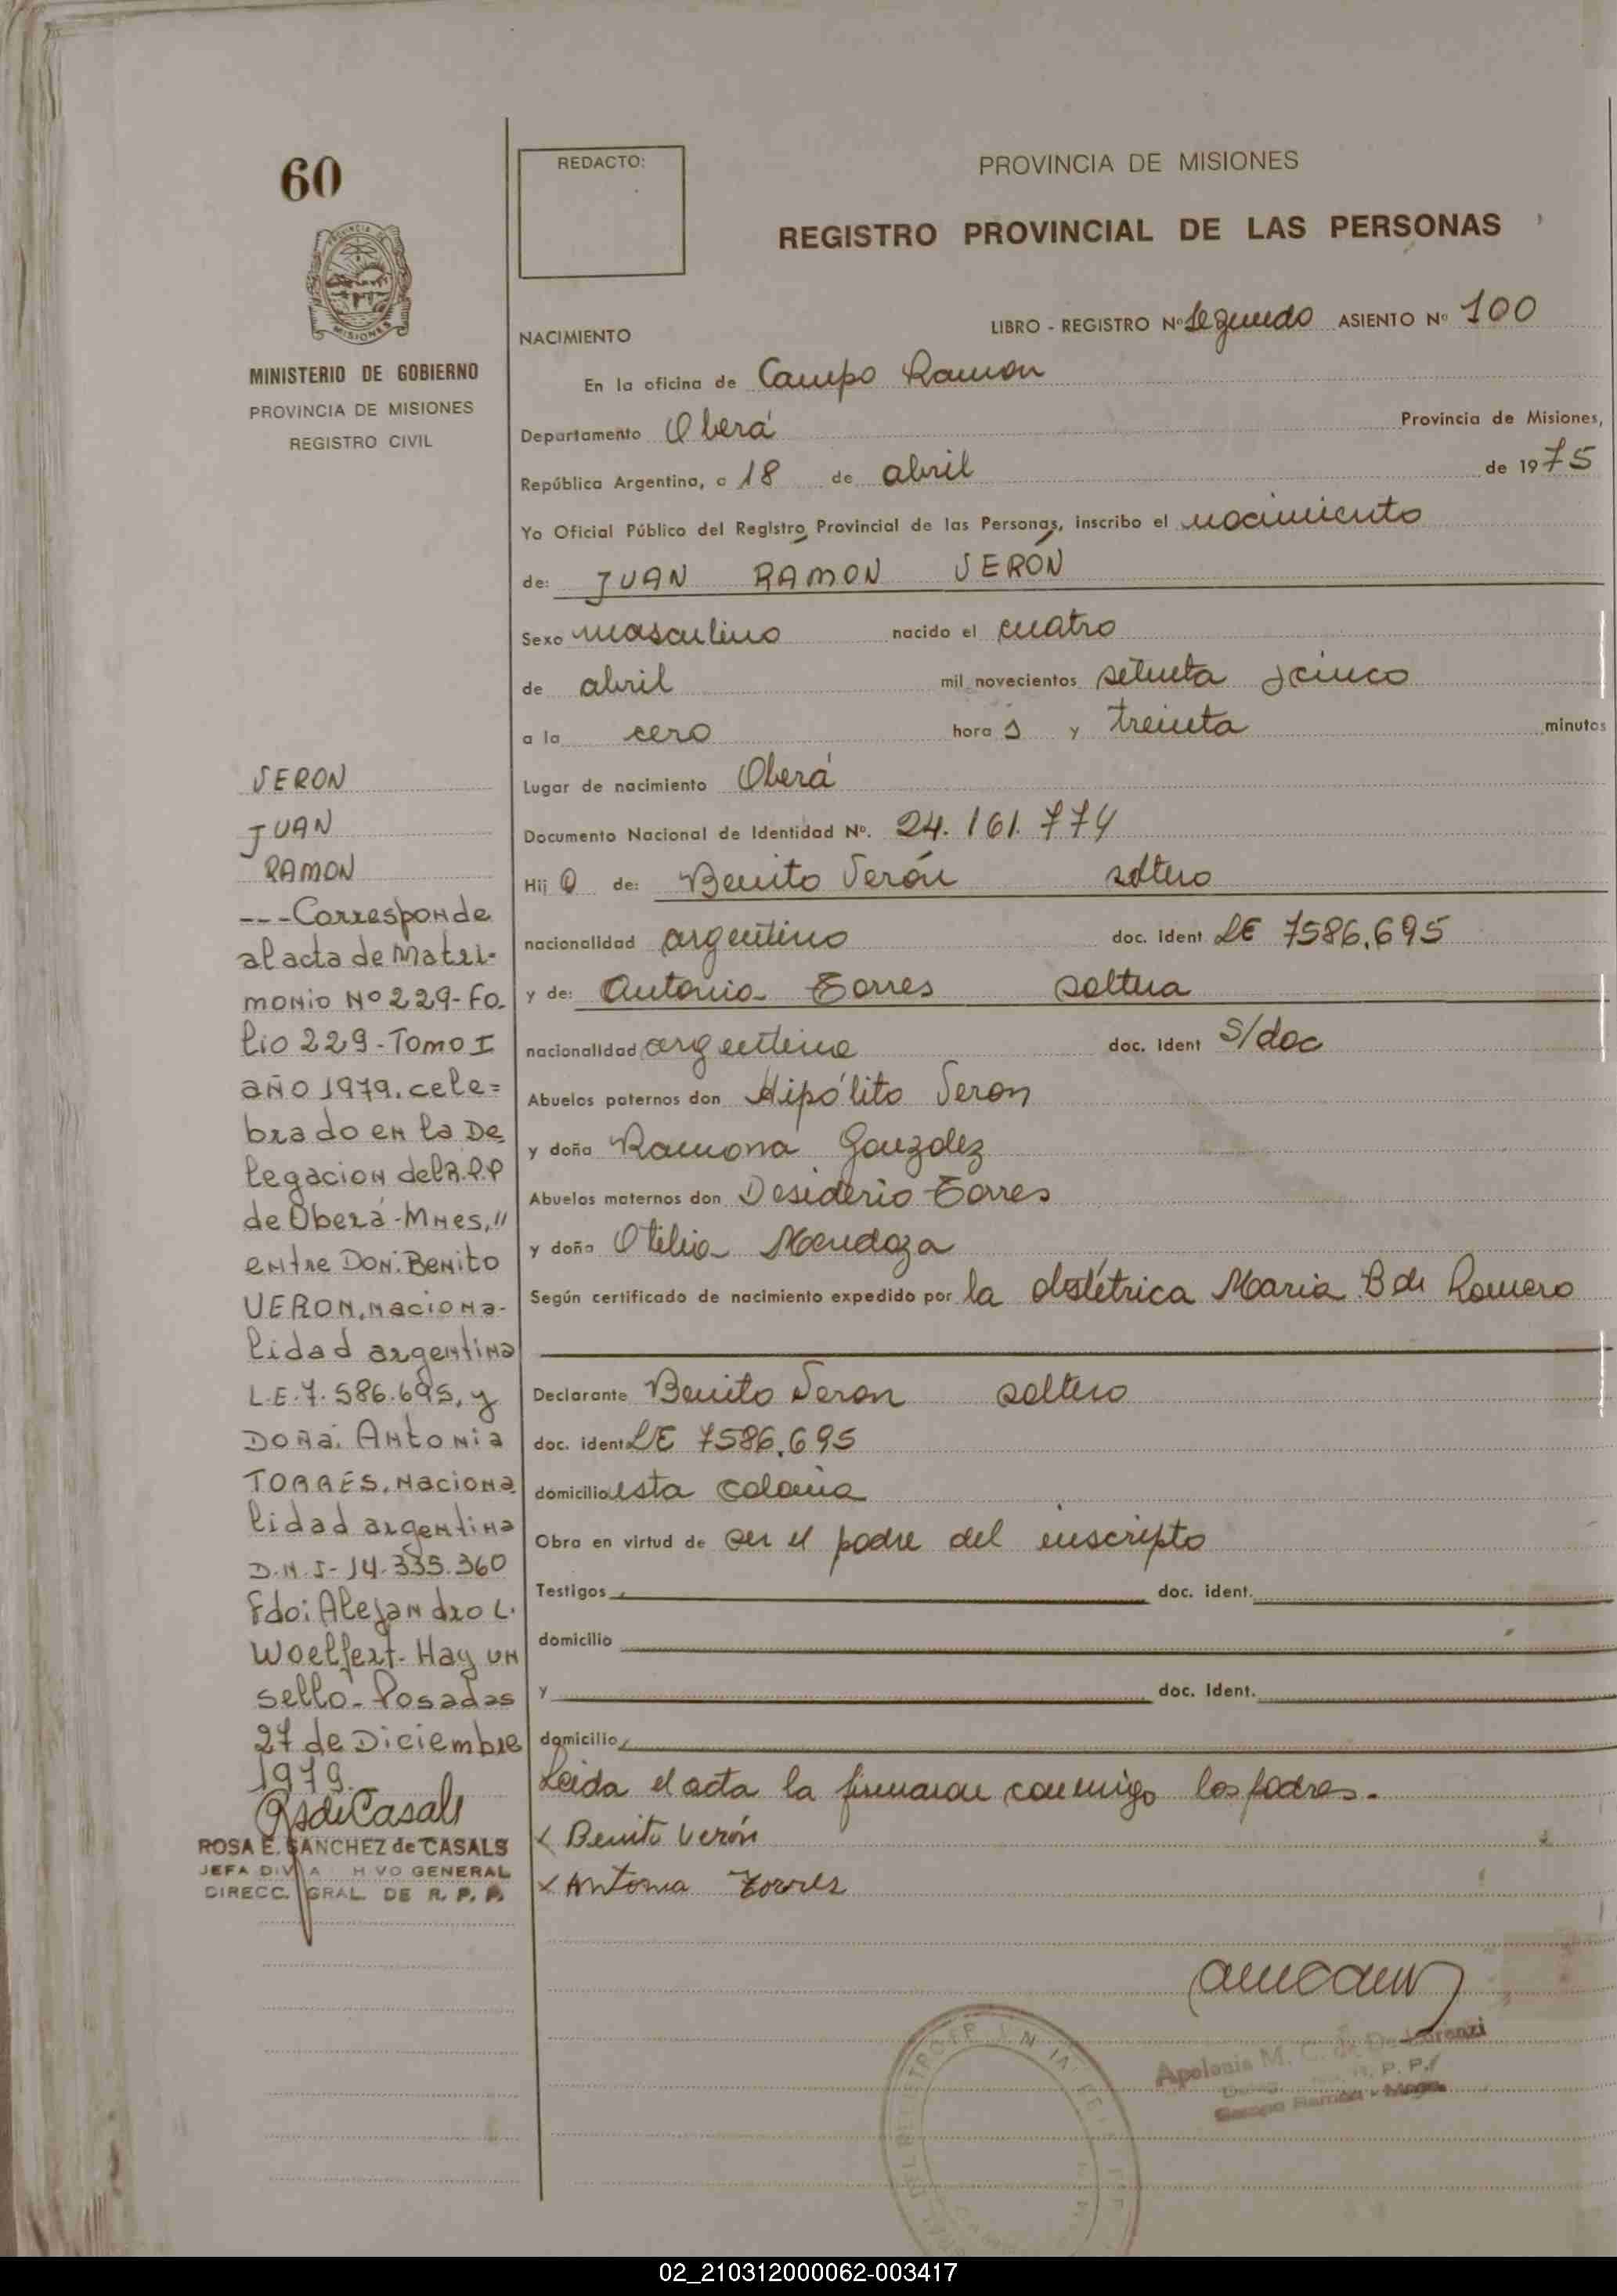 60
MINISTERIO DE GOBIERNO
PROVINCIA DE MISIONES
REGISTRO CIVIL
REDACTO:
PROVINCIA DE MISIONES
REGISTRO PROVINCIAL DE LAS PERSONAS
NACIMIENTO
LIBRO - REGISTRO Nº Segundo ASIENTO Nº 100
En la oficina de Campo Ramon
Departamento Oberá Provincia de Misiones,
República Argentina, a 18 de abril de 1975
Yo Oficial Público del Registro Provincial de las Personas, inscribo el nacimiento
de: JUAN RAMON VERÓN
Sexo masculino nacido el cuatro
de abril mil novecientos setenta y cinco
a la cero hora s y treinta minutos
Lugar de nacimiento Oberá
Documento Nacional de Identidad Nº. 24.161.774
Hij o de: Benito Verón soltero
nacionalidad argentino doc. ident LE 7586.695
y de: Antonia Torres soltera
nacionalidad argentina doc. ident S/doc
Abuelos paternos don Hipólito Veron
y doña Ramona Gonzalez
Abuelos maternos don Desiderio Torres
y doña Otilia Mendoza
Según certificado de nacimiento expedido por la obstétrica Maria B de Romero
Declarante Benito Veron soltero
doc. ident LE 7586.695
domicilio esta colonia
Obra en virtud de ser el padre del inscripto
Testigos doc. ident.
domicilio
y doc. ident.
domicilio
Leida el acta la firmaron conmigo los padres.
x Benito Verón
x Antonia Torres
Apolonia M. C. de De Lorenzi
R. P. P.
Campo Ramón - Mnes.
VERON
JUAN
RAMON
---Corresponde
al acta de Matri-
monio Nº 229-Fo-
lio 229-Tomo I
año 1979, cele=
brado en la De
legacion del R.P.P
de Oberá-Mnes,"
entre Don: Benito
VERON, naciona-
lidad argentina
L.E.7.586.695, y
Doña: Antonia
TORRES, naciona
lidad argentina
D.N.I-14.335.360
Fdo: Alejandro L.
Woelfert-Hay un
sello-Posadas
27 de Diciembre
1979.
RSdeCasals
ROSA E. SANCHEZ de CASALS
JEFA DIV A H VO GENERAL
DIRECC. GRAL. DE R. P. P.
02_210312000062-003417